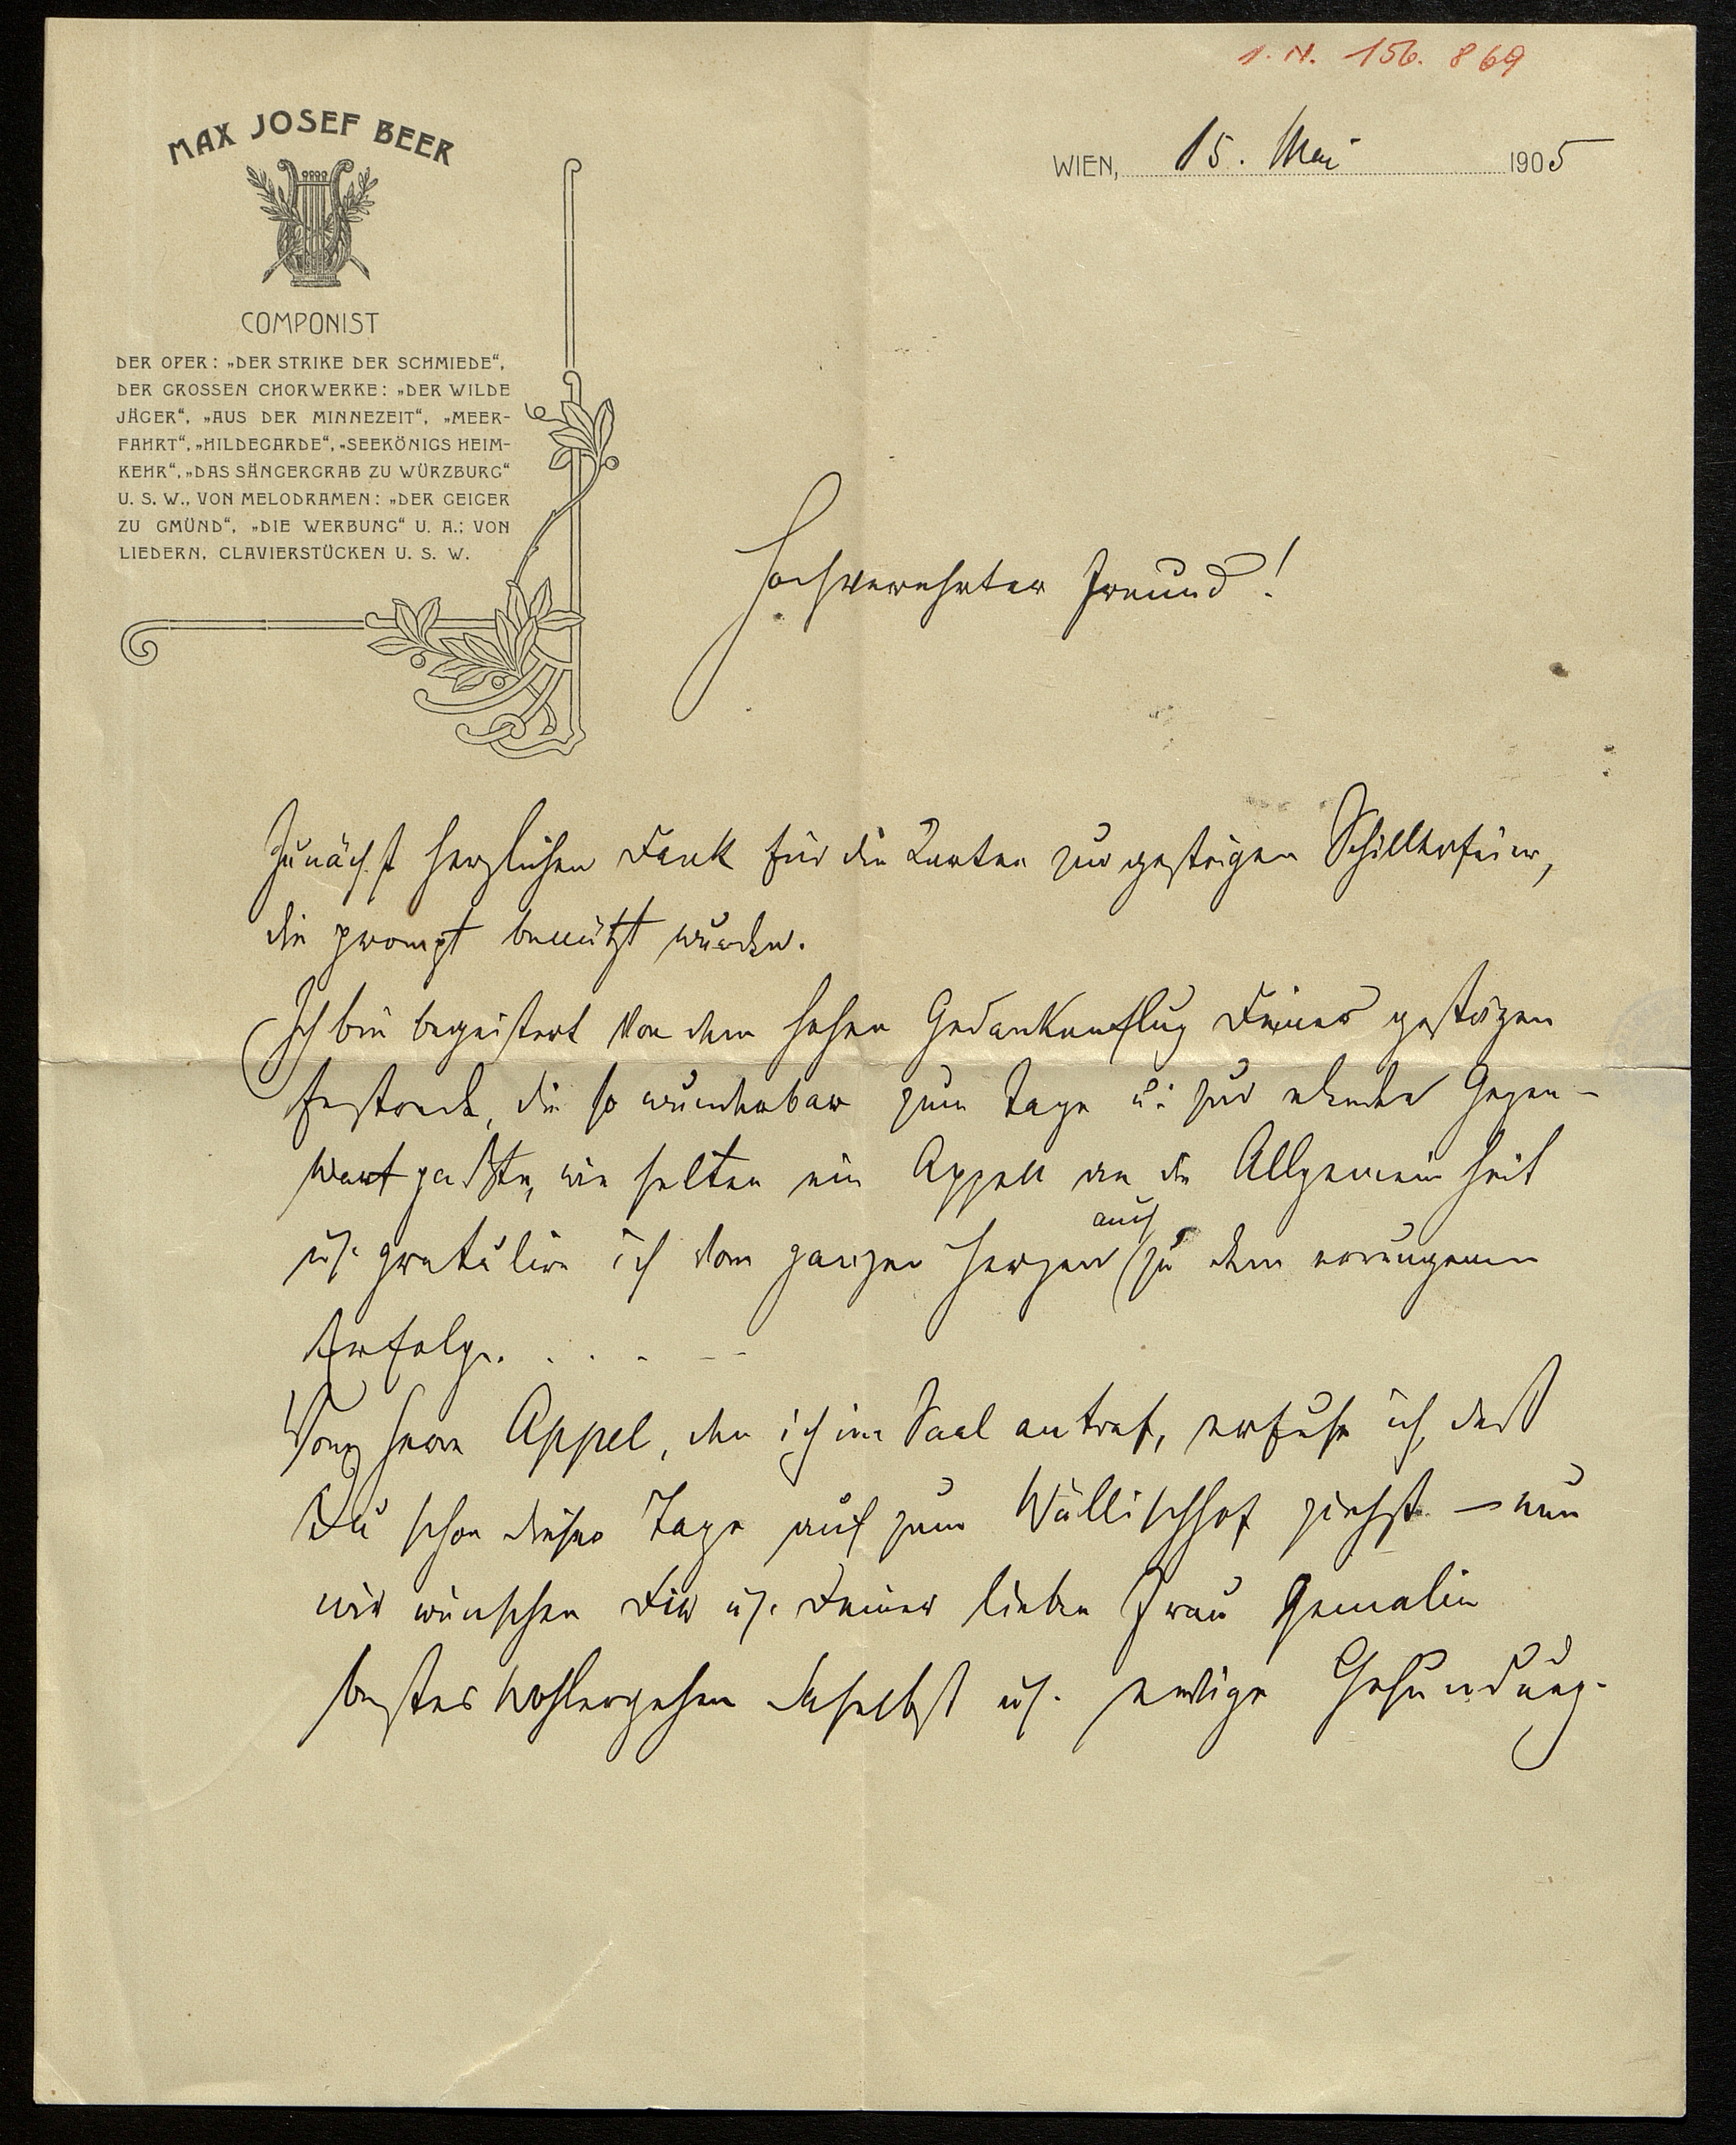 I. N. 156.869
MAX JOSEF BEER
COMPONIST
DER OPER: „DER STRIKE DER SCHMIEDE“,
DER GROSSEN CHORWERKE: „DER WILDE
JÄGER“, „AUS DER MINNEZEIT“, „MEER-
FAHRT“, „HILDEGARDE“, „SEEKÖNIGS HEIM-
KEHR“, „DAS SÄNGERGRAB ZU WÜRZBURG“
U. S. W., VON MELODRAMEN: „DER GEIGER
ZU GMÜND“, „DIE WERBUNG“ U. A.; VON
LIEDERN, CLAVIERSTÜCKEN U. S. W.
WIEN, 15. Mai 1905
Hochverehrter Freund!
Zunächst herzlichen Dank für die Karten zur gestrigen Schillerfeier,
die prompt benützt wurden.
Ich bin begeistert von dem hohen Gedankenflug Deiner gestrigen
Festrede, die so wunderbar zum Tage u. zur Gegen-
wart paßte, wie selten ein Appell an die Allgemeinheit
u. gratulire ich vom ganzen Herzen auch zu dem errungenen
Erfolge. . . . . – –
Von Herrn Appel, den ich im Saal antraf, erfuhr ich, daß
Du schon dieser Tage auf zum Wällischhof ziehst – nun
wir wünschen Dir u. Deiner lieben Frau Gemalin
bestes Wohlergehen daselbst u. Gesundung.